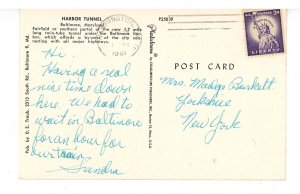 HARBOR TUNNEL
Baltimore, Maryland
Fairfield or southern portal of the new 1.7 mile
long twin-tube tunnel under the Baltimore Har-
bor, which affords a by-pass of the city con-
necting with all major highways.
Pub. by D. E. Traub, 2313 South Rd., Baltimore 9, Md.
P25039
Plastichrome
1961
3¢
LIBERTY
Hi,
Having a real
nice time down
here. We had to
wait in Baltimore
for an hour for
our train.
Sandra
Mrs. Madge Burkett
Yorkshire
New York